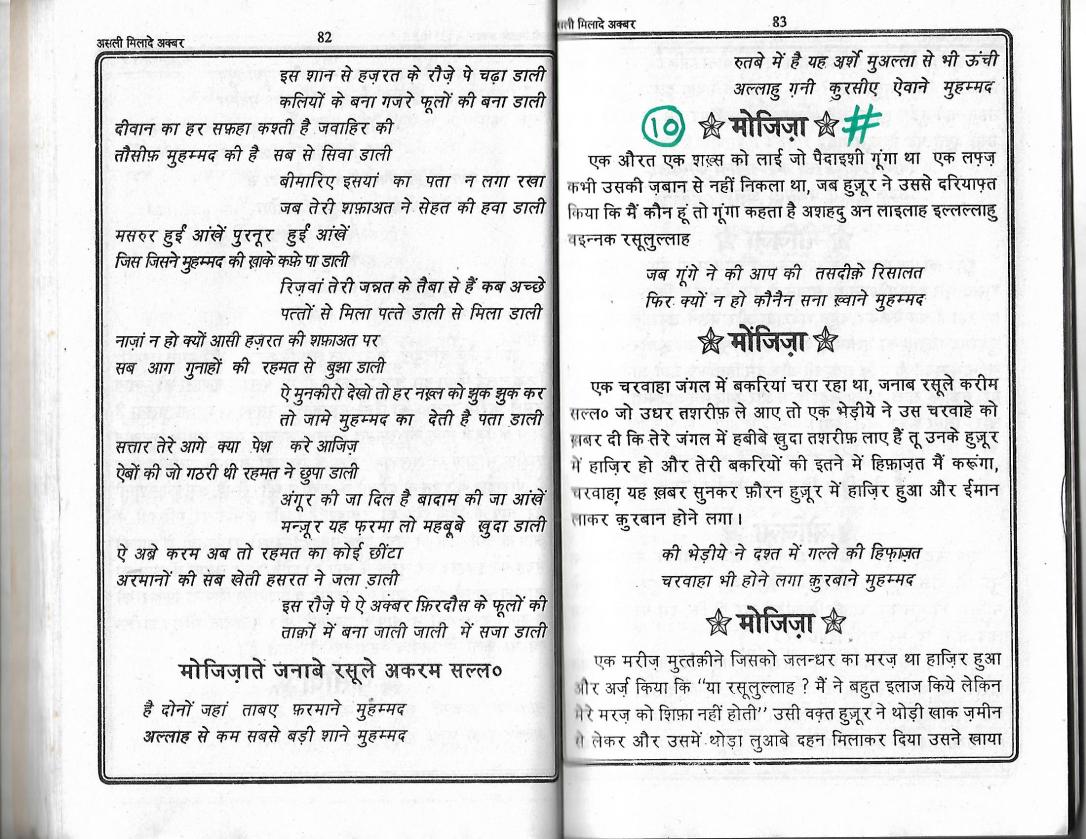 असली मिलादे अक्बर
82
इस शान से हज़रत के रौज़े पे चढ़ा डाली
कलियों के बना गजरे फूलों की बना डाली
दीवान का हर सफ़हा कश्ती है जवाहिर की
तौसीफ़ मुहम्मद की है सब से सिवा डाली
बीमारिए इसयां का पता न लगा रखा
जब तेरी शफ़ाअत ने सेहत की हवा डाली
मसरुर हुईं आंखें पुरनूर हुईं आंखें
जिस जिसने मुहम्मद की ख़ाके कफ़े पा डाली
रिज़वां तेरी जन्नत के तैबा से हैं कब अच्छे
पत्तों से मिला पत्ते डाली से मिला डाली
नाज़ां न हो क्यों आसी हज़रत की शफ़ाअत पर
सब आग गुनाहों की रहमत से बुझा डाली
ऐ मुनकीरो देखो तो हर नख़्ल को झुक झुक कर
तो जामे मुहम्मद का देती है पता डाली
सत्तार तेरे आगे क्या पेश करे आजिज़
ऐबों की जो गठरी थी रहमत ने छुपा डाली
अंगूर की जा दिल है बादाम की जा आंखें
मन्ज़ूर यह फ़रमा लो महबूबे ख़ुदा डाली
ऐ अब्रे करम अब तो रहमत का कोई छींटा
अरमानों की सब खेती हसरत ने जला डाली
इस रौज़े पे ऐ अक्बर फ़िरदौस के फूलों की
ताक़ों में बना जाली जाली में सजा डाली
मोजिज़ाते जनाबे रसूले अकरम सल्ल०
है दोनों जहां ताबए फ़रमाने मुहम्मद
अल्लाह से कम सबसे बड़ी शाने मुहम्मद
असली मिलादे अक्बर
83
रुतबे में है यह अर्शे मुअल्ला से भी ऊंची
अल्लाहु ग़नी कुरसीए ऐवाने मुहम्मद
10 मोजिज़ा #
एक औरत एक शख़्स को लाई जो पैदाइशी गूंगा था एक लफ्ज़
कभी उसकी ज़बान से नहीं निकला था, जब हुज़ूर ने उससे दरियाफ़्त
किया कि मैं कौन हूं तो गूंगा कहता है अशहदु अन लाइलाह इल्लल्लाहु
वइन्नक रसूलुल्लाह
जब गूंगे ने की आप की तसदीक़े रिसालत
फिर क्यों न हो कौनैन सना ख़्वाने मुहम्मद
मोंजिज़ा
एक चरवाहा जंगल में बकरियां चरा रहा था, जनाब रसूले करीम
सल्ल० जो उधर तशरीफ़ ले आए तो एक भेड़ीये ने उस चरवाहे को
ख़बर दी कि तेरे जंगल में हबीबे खुदा तशरीफ़ लाए हैं तू उनके हुज़ूर
में हाज़िर हो और तेरी बकरियों की इतने में हिफ़ाज़त मैं करूंगा,
चरवाहा यह ख़बर सुनकर फ़ौरन हुज़ूर में हाज़िर हुआ और ईमान
लाकर क़ुरबान होने लगा।
की भेड़ीये ने दश्त में गल्ले की हिफ़ाज़त
चरवाहा भी होने लगा क़ुरबाने मुहम्मद
मोजिज़ा
एक मरीज़ मुत्तक़ीने जिसको जलन्धर का मरज़ था हाज़िर हुआ
और अर्ज़ किया कि “या रसूलुल्लाह ? मैं ने बहुत इलाज किये लेकिन
मेरे मरज़ को शिफ़ा नहीं होती” उसी वक़्त हुज़ूर ने थोड़ी खाक ज़मीन
से लेकर और उसमें थोड़ा लुआबे दहन मिलाकर दिया उसने खाया